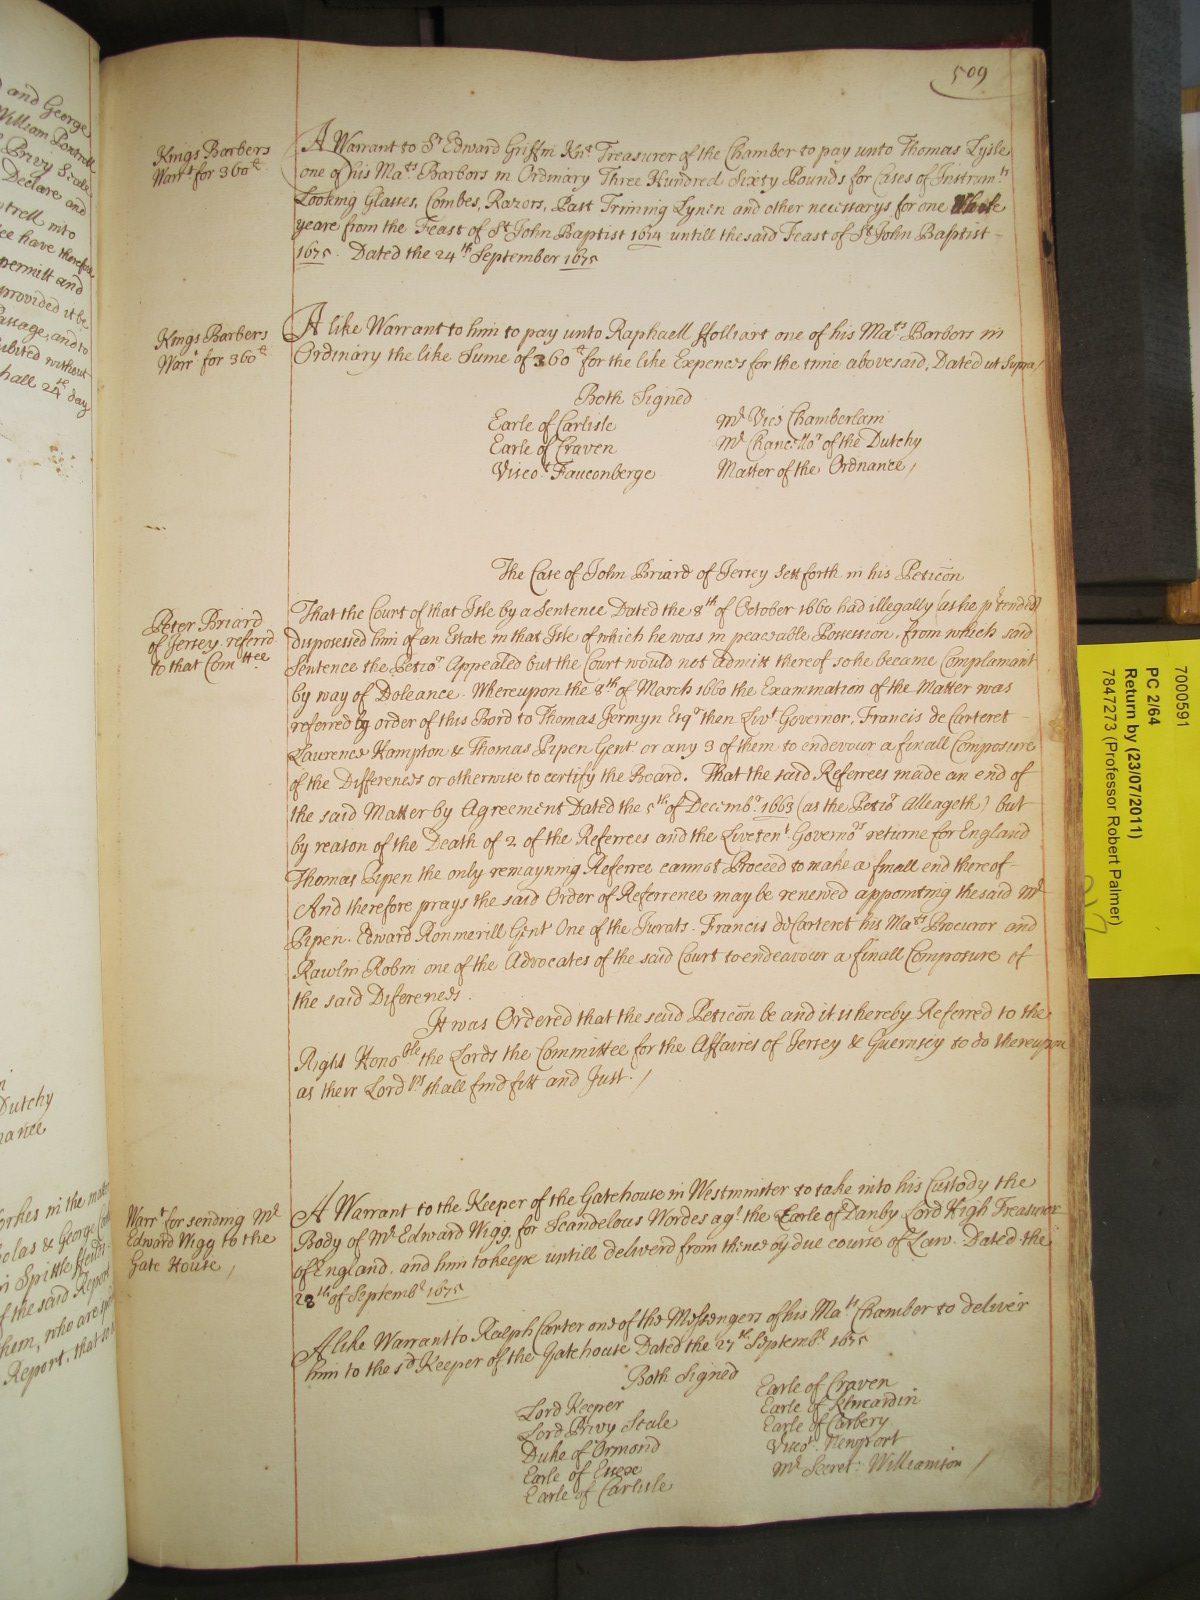 509
Kings Barbers
Warrt for 360li
A Warrant to Sr Edward Griffin Knt Treasurer of the Chamber to pay unto Thomas Lysle
one of his Mats Barbors in Ordinary Three Hundred Sixty Pounds for Cases of Instrumts
Looking Glasses, Combes, Razors, Past Triming Lynen and other necessarys for one Whole
yeare from the Feast of St John Baptist 1674 untill the said Feast of St John Baptist
1675. Dated the 24th September 1675
Kings Barbers
Warrt for 360li
A like Warrant to him to pay unto Raphaell Ffolliart one of his Mats Barbors in
Ordinary the like Sume of 360li for the like Expences for the time abovesaid, Dated ut Supra/
Both Signed
Earle of Carlisle
Earle of Craven
Viscot Fauconberge
Mr Vice Chamberlain
Mr Chancellor of the Dutchy
Master of the Ordnance/
The Case of John Briard of Jersey Sett forth in his Peticōn
Peter Briard
of Jersey referrd
to that Comttee
That the Court of that Isle by a Sentence Dated the 8th of October 1660 had illegally (as he prtended)
dispossed him of an Estate in that Isle of which he was in peaceable Possession, from which said
Sentence the Petior Appealed but the Court would not admitt thereof so he became Complainant
by way of Doleance. Whereupon the 8th of March 1660 the Examination of the Matter was
referred by order of this Bord to Thomas Jermyn Esqr then Livt Governor, Francis de Carteret
Laurence Hampton & Thomas Pipen Gent or any 3 of them to endevour a finall Composure
of the Differences or otherwise to certify the Board. That the said Referrees made an end of
the said Matter by Agreement Dated the 5th of Decembr 1663 (as the Petior Alleageth) but
by reason of the Death of 2 of the Referrees and the Livetent Governors returne for England
Thomas Pipen the only remayning Referree cannot Proceed to make a finall end thereof
And therefore prays the said Order of Referrence may be renewed appointing the said Mr
Pipen. Edward Ronmerill Gent One of the Jurats. Francis de Carteret his Mats Procuror and
Rawlin Robin one of the Advocates of the said Court to endeavour a finall Composure of
the said Diferences.
It was Ordered that the said Peticōn be and it is hereby Referred to the
Right Honoble the Lords the Committee for the Affaires of Jersey & Guernsey to do thereupon
as their Lordps shall find fitt and Just./
Warrt for sending Mr
Edward Wigg to the
Gate House/
A Warrant to the Keeper of the Gatehouse in Westminster to take into his Custody the
Body of Mr Edward Wigg, for Scandelous Wordes agt the Earle of Danby Lord High Treasurer
of England, and him to keepe untill deliverd from thence by due course of Law. Dated the
28th of Septembr 1675
A like Warrant to Ralph Carter one of the Messengers of his Mats Chamber to deliver
him to the sd Keeper of the Gatehouse Dated the 27th Septembr 1675
Both Signed
Lord Keeper
Lord Privy Seale
Duke of Ormond
Earle of Essex
Earle of Carlisle
Earle of Craven
Earle of Kincardin
Earle of Carbery
Viscot. Newport
Mr Secret: Williamson /
and George
William Pontrell
Privy Seale
Declare and
ntrell into
ee have therefore
permitt and
provided it be
Passage, and to
hibited without
hall 24th day
Dutchy
nance
orkes in the matter
holas & George
in Spittle ffeilds
f the said Report
hem, who are
Report, that
7000591
PC 2/64
Return by (23/07/2011)
7847273 (Professor Robert Palmer)